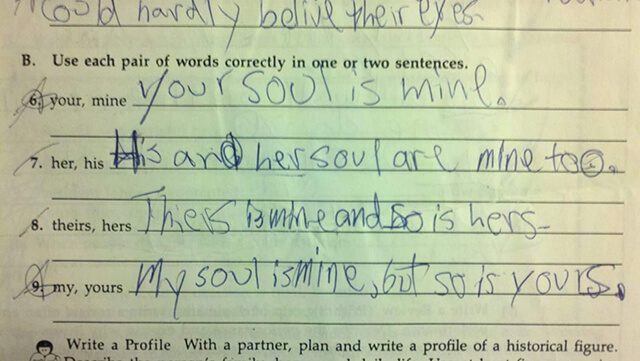 could hardly belive their eyes.
B. Use each pair of words correctly in one or two sentences.
6. your, mine your soul is mine.
7. her, his His and her soul are mine too.
8. theirs, hers Thiers is mine and so is hers.
9. my, yours My soul is mine, but so is yours.
Write a Profile With a partner, plan and write a profile of a historical figure.